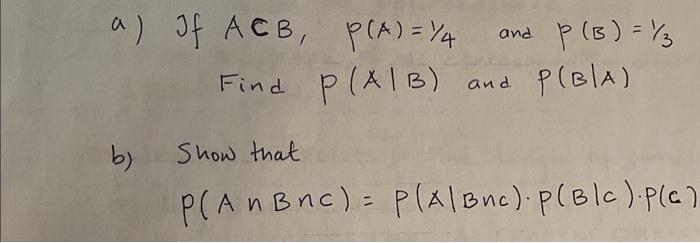 a) If A⊂B, P(A) = 1/4 and P(B) = 1/3
Find P(A|B) and P(B|A)
b) Show that
P(A∩B∩C) = P(A|B∩C)·P(B|C)·P(C)